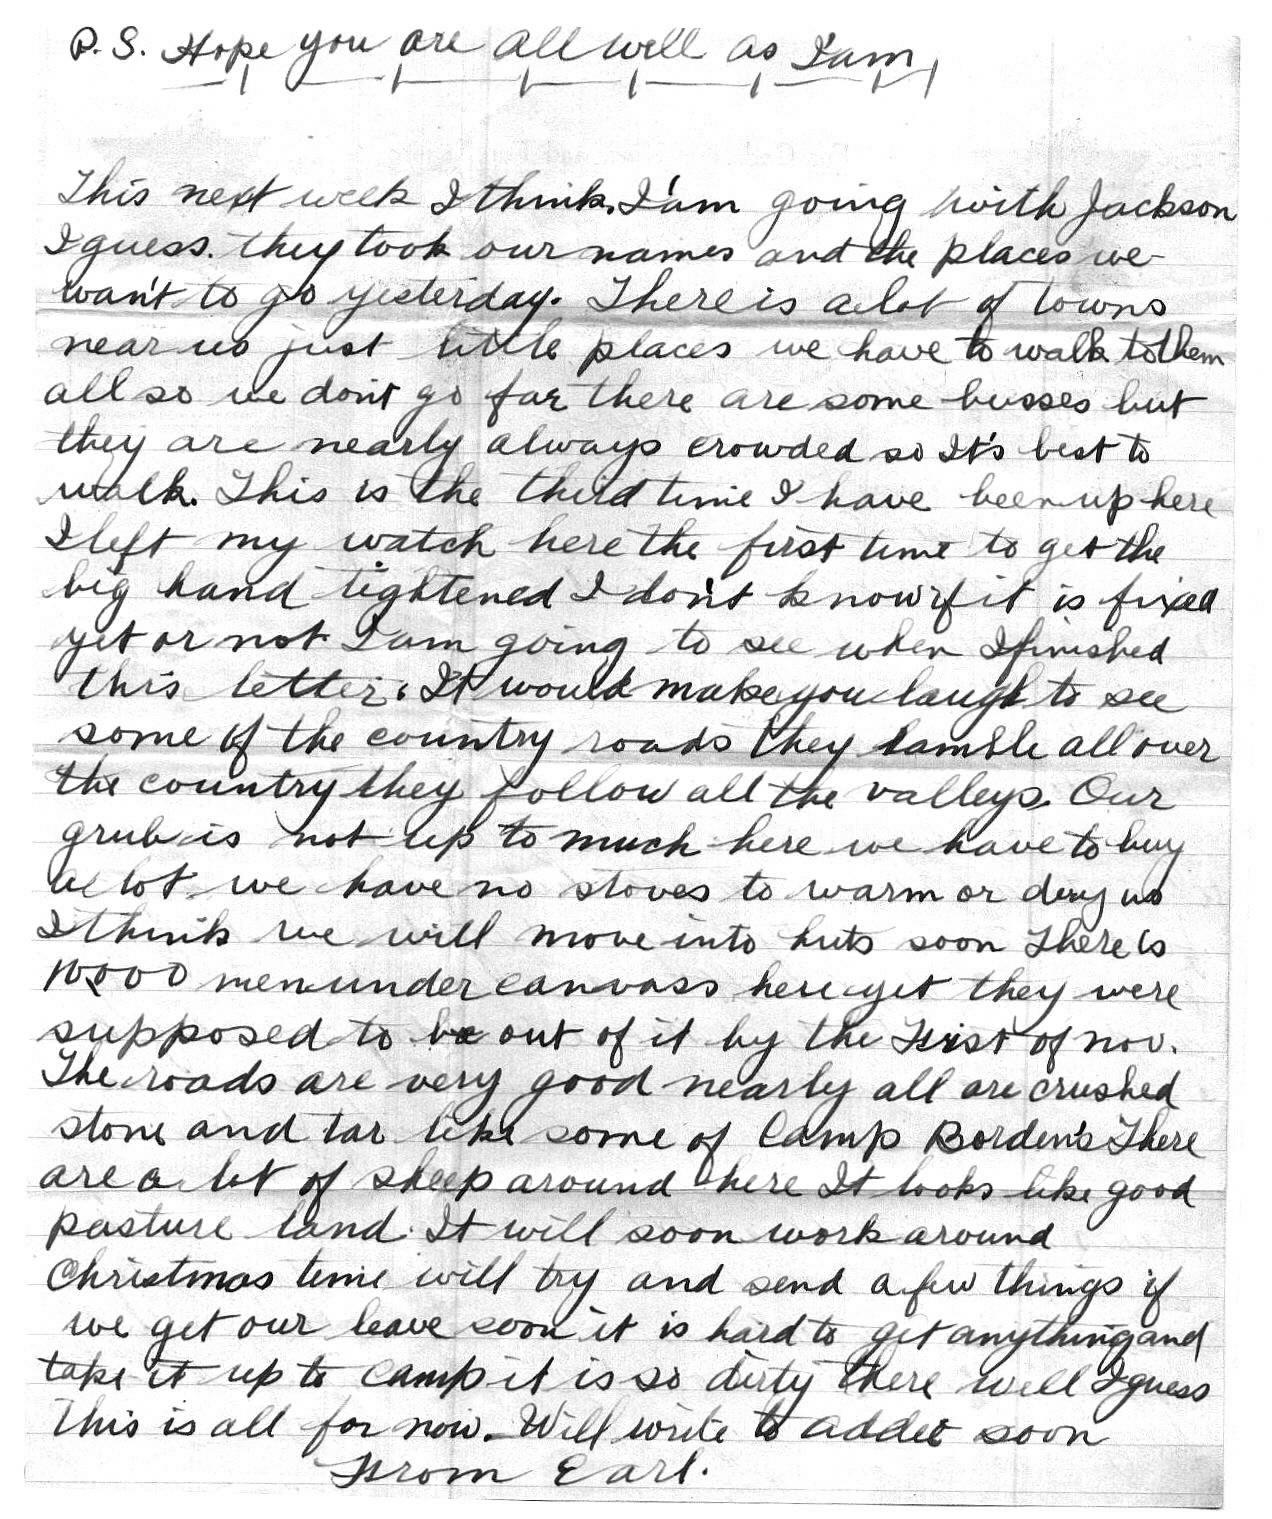 P. S. Hope you are all well as I am
This next week I think. I'am going with Jackson
I guess. they took our names and the places we
wan't to go yesterday. There is a lot of towns
near us just little places we have to walk to them
all so we don't go far there are some busses but
they are nearly always crowded so It's best to
walk. This is the third time I have been up here
I left my watch here the first time to get the
big hand tightened I don't know if it is fixed
yet or not I am going to see when I finished
this letter. It would make you laugh to see
some of the country roads they ramble all over
the country they follow all the valleys. Our
grub is not up to much here we have to buy
a lot. we have no stoves to warm or dry us
I think we will move into huts soon There is
10,000 men under canvass here yet they were
supposed to be out of it by the First of nov.
The roads are very good nearly all are crushed
stone and tar like some of Camp Borden's There
are a lot of sheep around here It looks like good
pasture land. It will soon work around
Christmas time will try and send a few things if
we get our leave soon it is hard to get anything and
take it up to camp it is so dirty there well I guess
this is all for now. Will write to soon
From Earl.